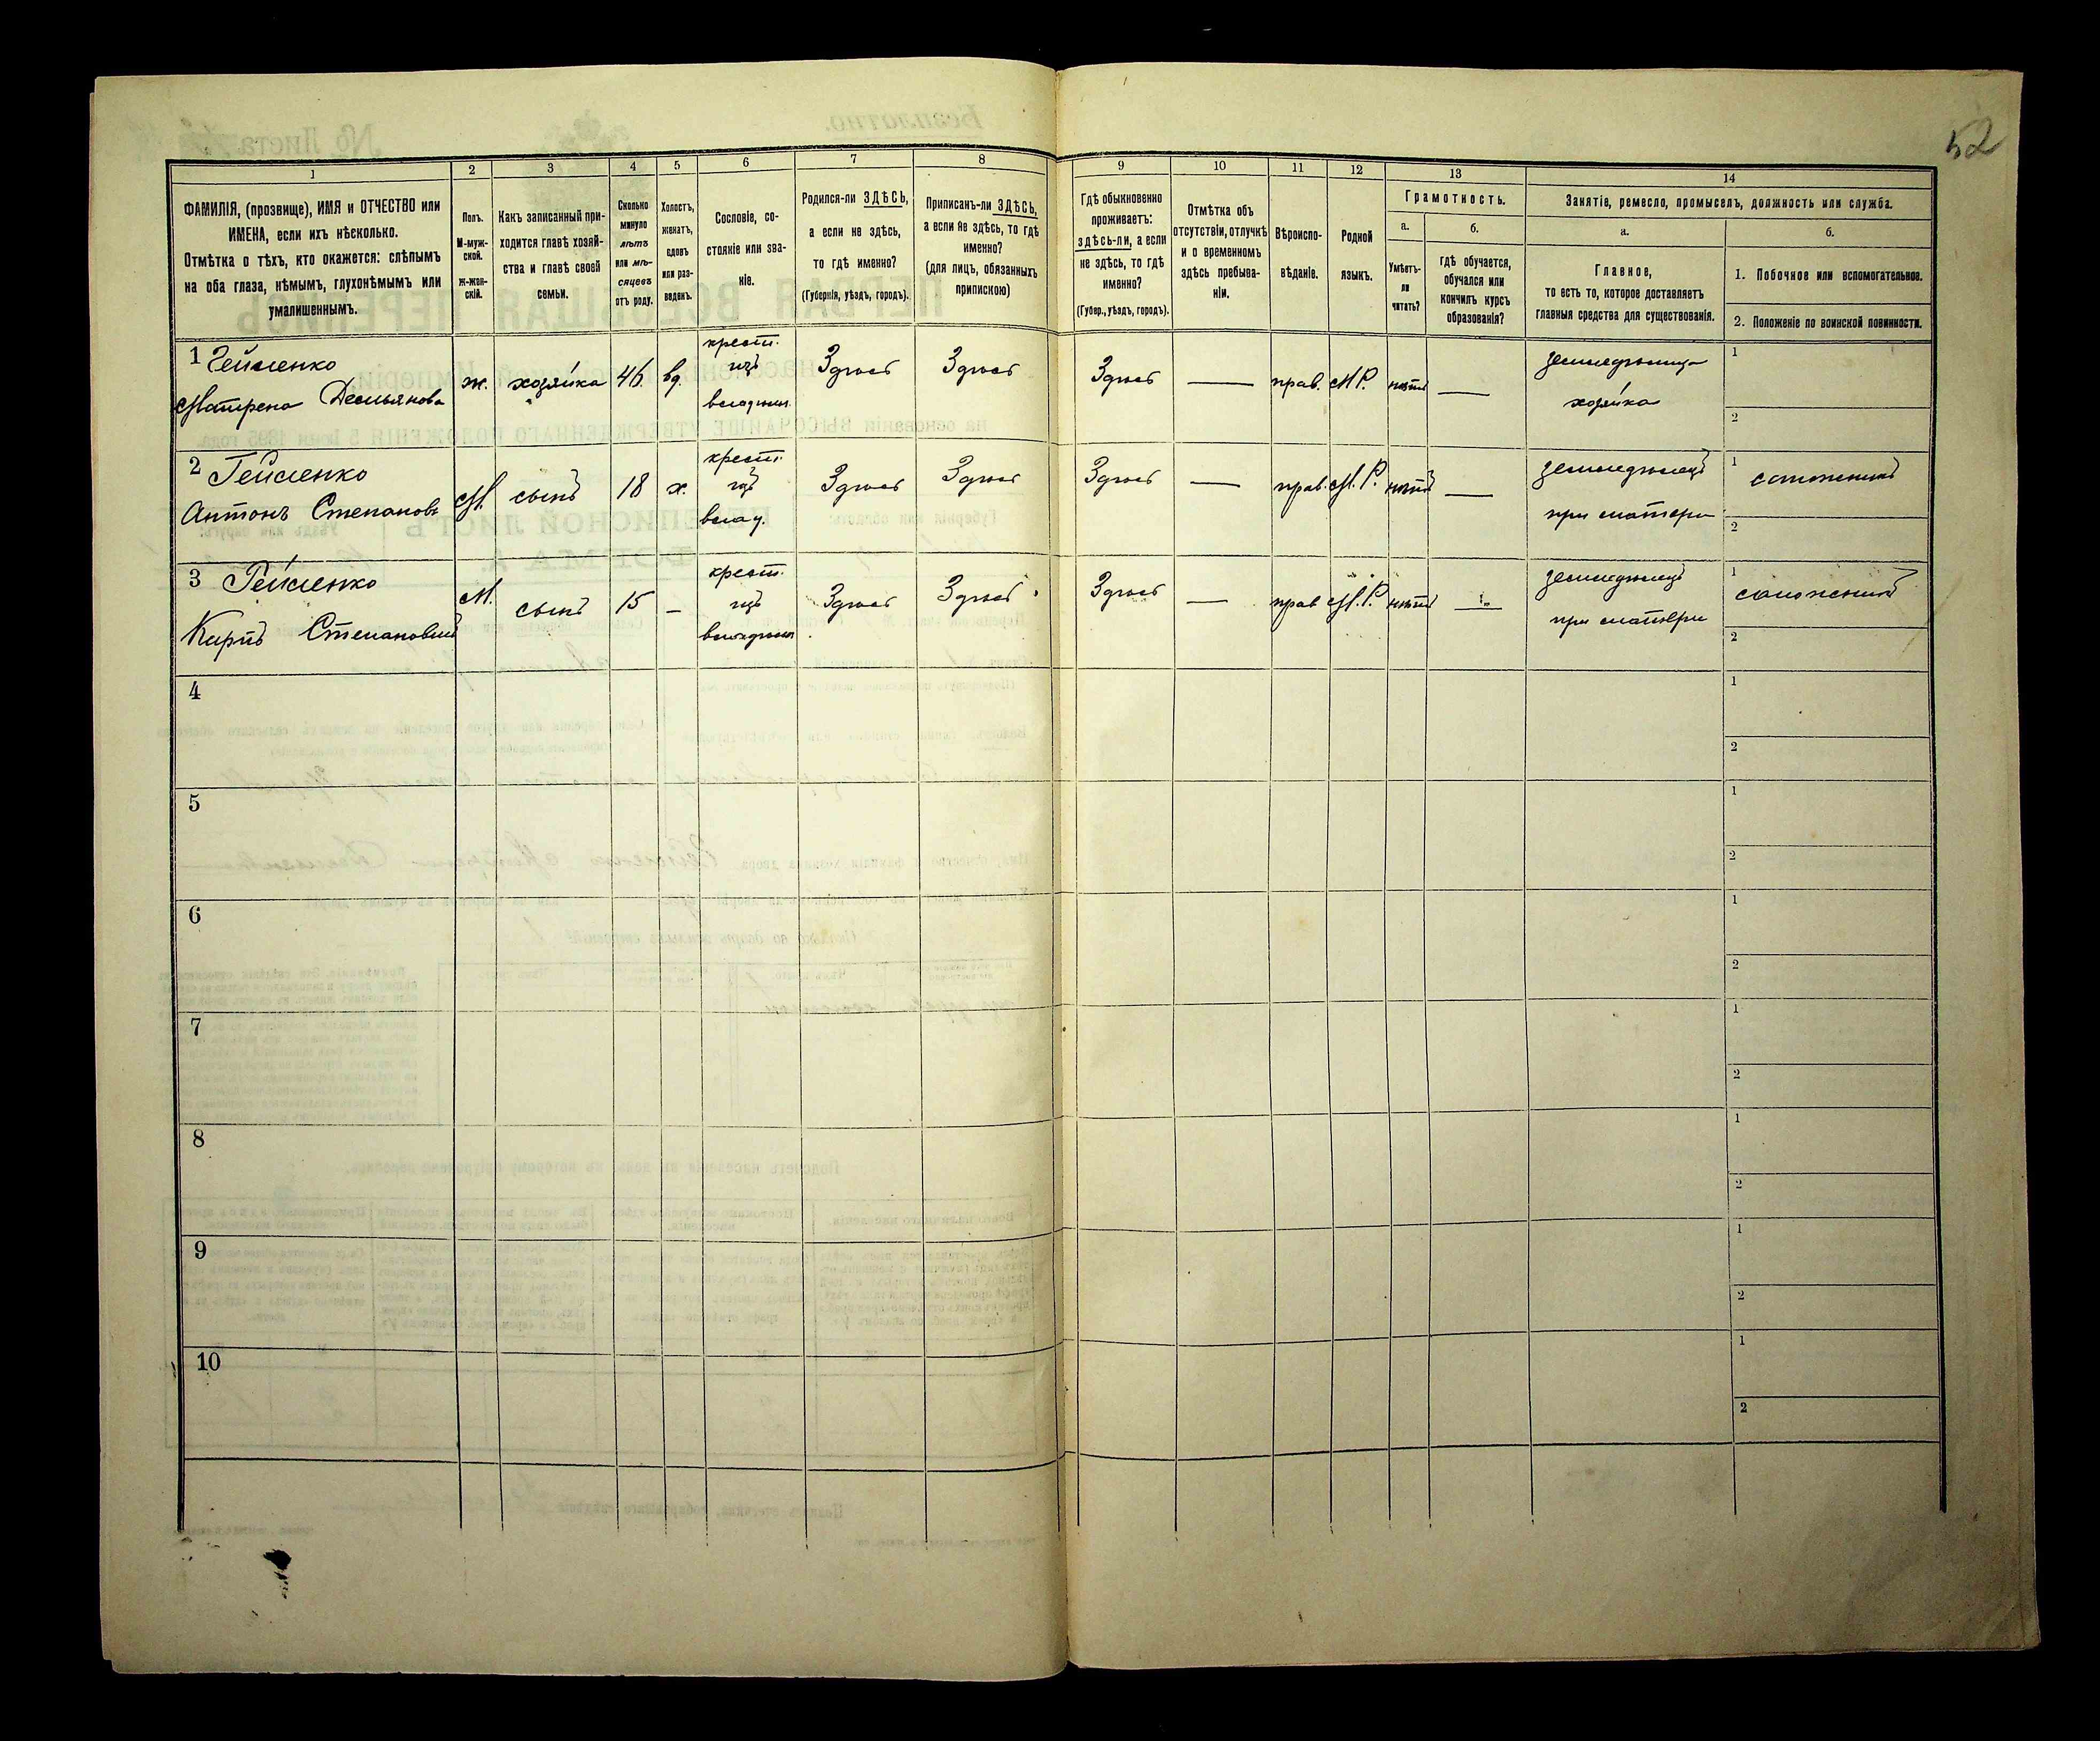 52
1 2 3 4 5 6 7 8 9 10 11 12 13 14
ФАМИЛІЯ, (прозвище), ИМЯ и ОТЧЕСТВО или
ИМЕНА, если ихъ нѣсколько.
Отмѣтка о тѣхъ, кто окажется: слѣпымъ
на оба глаза, нѣмымъ, глухонѣмымъ или
умалишеннымъ.
Полъ.
М-муж-
ской.
Ж-жен-
скій.
Какъ записанный при-
ходится главѣ хозяй-
ства и главѣ своей
семьи.
Сколько
минуло
лѣтъ
или мѣ-
сяцевъ
отъ роду.
Холостъ,
женатъ,
вдовъ
или раз-
веденъ.
Сословіе, со-
стояніе или зва-
ніе.
Родился-ли ЗДѢСЬ,
а если не здѣсь,
то гдѣ именно?
(Губернія, уѣздъ, городъ).
Приписанъ-ли ЗДѢСЬ,
а если не здѣсь, то гдѣ
именно?
(для лицъ, обязанныхъ
припискою)
Гдѣ обыкновенно
проживаетъ:
здѣсь-ли, а если
не здѣсь, то гдѣ
именно?
(Губер., уѣздъ, городъ).
Отмѣтка объ
отсутствіи, отлучкѣ
и о временномъ
здѣсь пребыва-
ніи.
Вѣроиспо-
вѣданіе.
Родной
языкъ.
Грамотность.
а.
Умѣетъ-
ли
читать?
б.
гдѣ обучается,
обучался или
кончилъ курсъ
образованія?
Занятіе, ремесло, промыселъ, должность или служба.
а.
Главное,
то есть то, которое доставляетъ
главныя средства для существованія.
б.
1. Побочное или вспомогательное.
2. Положеніе по воинской повинности.
1 Гейленко
Матрена Демьянова
ж. хозяйка 46 вд.
крест.
изъ
Здѣсь Здѣсь Здѣсь — прав. М.Р. нѣтъ —
хозяйка
1
2
2 Гейленко
Антонъ Степановъ
М. сынъ 18 х.
крест.
изъ
Здѣсь Здѣсь Здѣсь — прав. М.Р. нѣтъ —
земледѣлецъ
при матери
1 сапожникъ
2
3 Гейленко
Карпъ Степановичъ
М. сынъ 15 —
крест.
изъ
Здѣсь Здѣсь Здѣсь — прав. М.Р. нѣтъ —
земледѣлецъ
при матери
1 сапожникъ
2
4 1
2
5 1
2
6 1
2
7 1
2
8 1
2
9 1
2
10 1
2